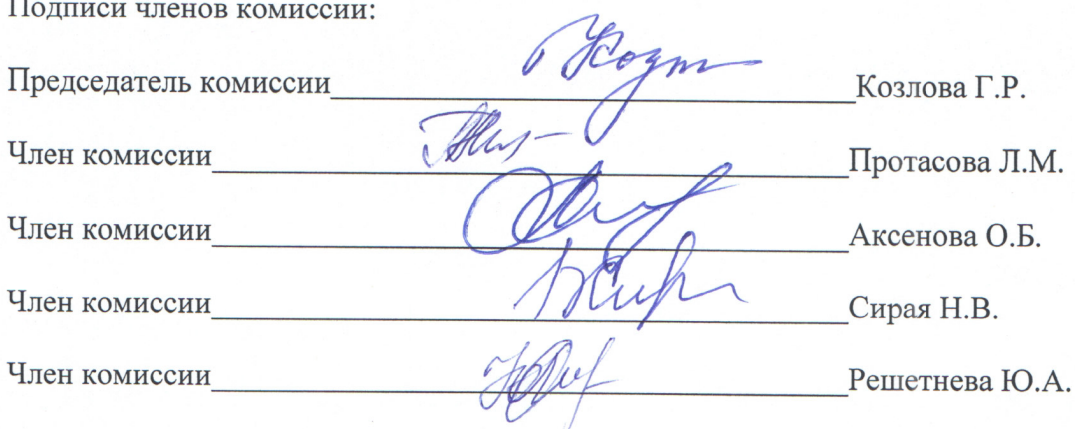 Подписи членов комиссии:
Председатель комиссии Козлова Г.Р.
Член комиссии Протасова Л.М.
Член комиссии Аксенова О.Б.
Член комиссии Сирая Н.В.
Член комиссии Решетнева Ю.А.